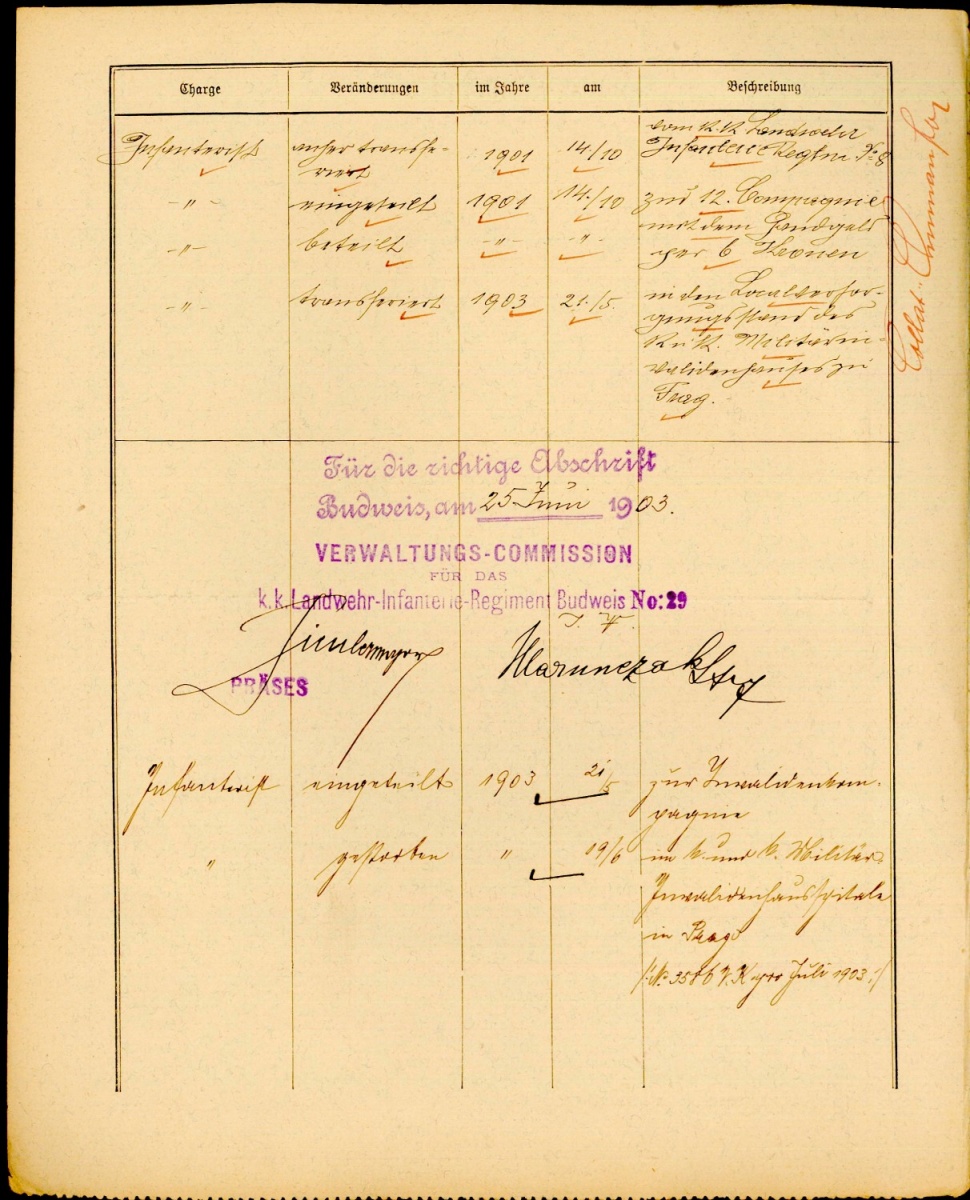 Charge Veränderungen im Jahre am Beschreibung
Infanterist anher transfe- 1901 14./10 vom k. k. Landwehr
riert Infanterie Regtm. No 8
-"- eingeteilt 1901 14./10 zur 12. Compagnie
-"- beteilt -"- -"- mit dem Handgeld
per 6 Kronen
-"- transferiert 1903 21./5. in den Localversor-
gungsstand des
k. u. k. Militärin-
validenhauses zu
Prag.
Für die richtige Abschrift
Budweis, am 25 Juni 1903.
VERWALTUNGS-COMMISSION
FÜR DAS
k.k. Landwehr-Infanterie-Regiment Budweis No: 29
PRÄSES
Infanterist eingeteilt 1903 21/5 zur Invalidenkom-
pagnie
" gestorben " 19/6 im k. und k. Militär
Invalidenhausspitale
in Prag
/: No 3586 V. K pro Juli 1903 :/
Collat.